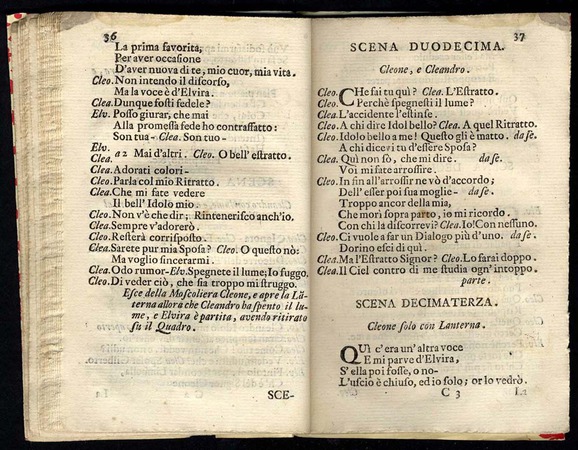 36
La prima favorita,
Per aver occasione
D'aver nuova di te, mio cuor, mia vita.
Cleo. Non intendo il discorso,
Ma la voce è d'Elvira.
Clea. Dunque fosti fedele?
Elv. Posso giurar, che mai
Alla promessa fede ho contrassatto:
Son tua - Clea. Son tuo -
Elv.
Clea. a 2 Mai d'altri. Cleo. O bell'estratto.
Clea. Adorati colori -
Cleo. Parla col mio Ritratto.
Clea. Che mi fate vedere
Il bell' Idolo mio
Cleo. Non v'è che dir; Rintenerisco anch'io.
Clea. Sempre v'adorerò.
Cleo. Resterà corrisposto.
Clea. Sarete pur mia Sposa? Cleo. O questo nò:
Ma voglio sincerarmi.
Clea. Odo rumor- Elv. Spegnete il lume; Io fuggo.
Cleo. Di veder ciò, che sia troppo mi struggo.
Esce della Moscoliera Cleone, e apre la Lã-
terna allora che Cleandro ha spento il lu-
me, e Elvira è partita, avendo ritirato
su il Quadro.
SCE-
37
SCENA DUODECIMA.
Cleone, e Cleandro.
Cleo. CHe fai tu quì? Clea. L'Estratto.
Cleo. Perchè spegnesti il lume?
Clea. L'accidente l'estinse.
Cleo. A chi dire Idol bello? Clea. A quel Ritratto.
Cleo. Idolo bello a me! Questo gli è matto. da se.
A chi dicevi tu d'essere Sposa?
Clea. Quì non sò, che mi dire. da se.
Voi mi fate arrossire.
Cleo. In fin all'arrossir ne vò d'accordo;
Dell'esser poi sua moglie - da se.
Troppo ancor della mia,
Che morì sopra parto, io mi ricordo.
Con chi la discorrevi? Clea. Io! Con nessuno.
Cleo. Ci vuole a far un Dialogo più d'uno. da se.
Dorino esci di quì.
Clea. Ma l'Estratto Signor? Cleo. Lo farai doppo.
Clea. Il Ciel contro di me studia ogn'intoppo.
parte.
SCENA DECIMATERZA.
Cleone solo con Lanterna.
QUì c'era un'altra voce
E mi parve d'Elvira,
S'ella poi fosse, o no-
L'uscio è chiuso, ed io solo; or lo vedrò.
C 3